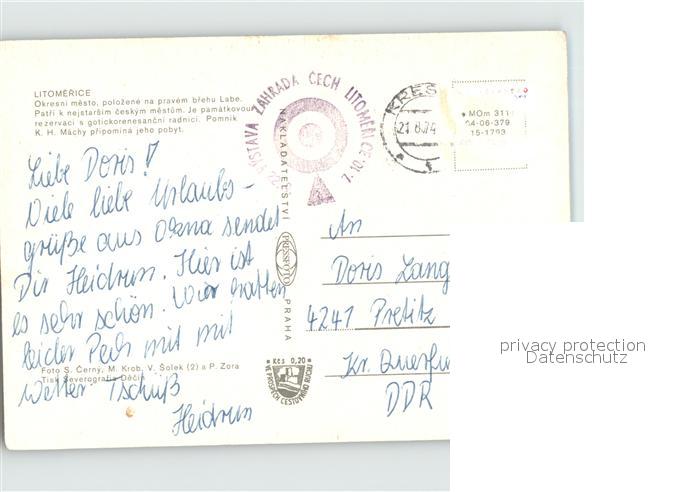 LITOMĚŘICE
Okresní město, položené na pravém břehu Labe.
Patří k nejstarším českým městům. Je památkovou
rezervací s gotickorenesanční radnicí. Pomník
K. H. Máchy připomíná jeho pobyt.
VÝSTAVA ZAHRADA ČECH LITOMĚŘICE
7.10.
21.8.74
MOm 311
04-06-379
15-1793
Liebe Doris!
Viele liebe Urlaubs-
grüße aus sendet
Dir Heidrun. Hier ist
es sehr schön. Wir hatten
leider Pech mit mit
Wetter Tschüß
Heidrun
Foto S. Černý, M. Krob, V. Šolek (2) a P. Zora
Tisk Severografia Děčín
NAKLADATELSTVÍ
PRESSFOTO
PRAHA
Kčs 0,20
VE PROSPĚCH CESTOVNÍHO RUCHU
An
Doris Lang
4241 Pretitz
Kr. Querfu
DDR
privacy protection
Datenschutz